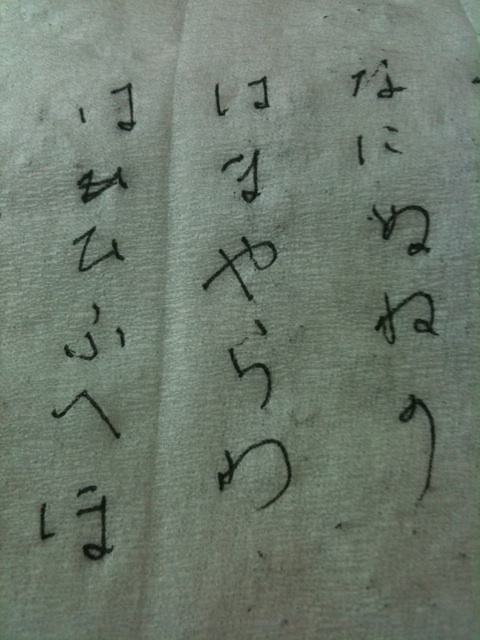 なにぬねの
はまやらわ
はひふへほ